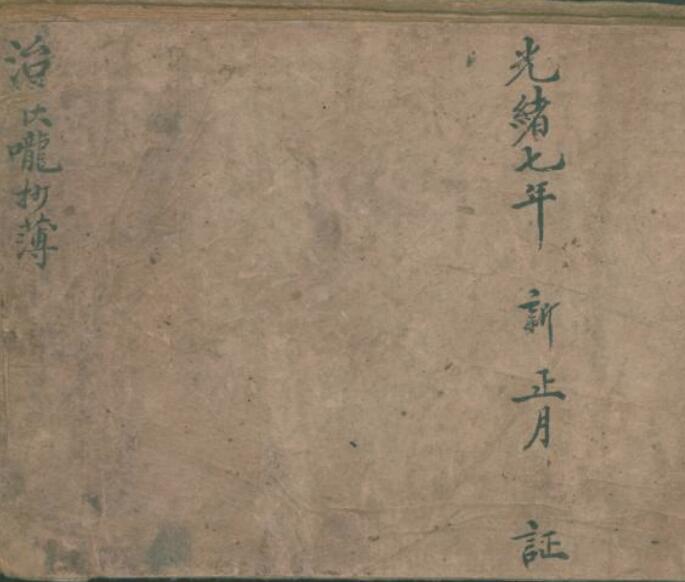 光緒七年 新正月 証
治大嚨抄薄